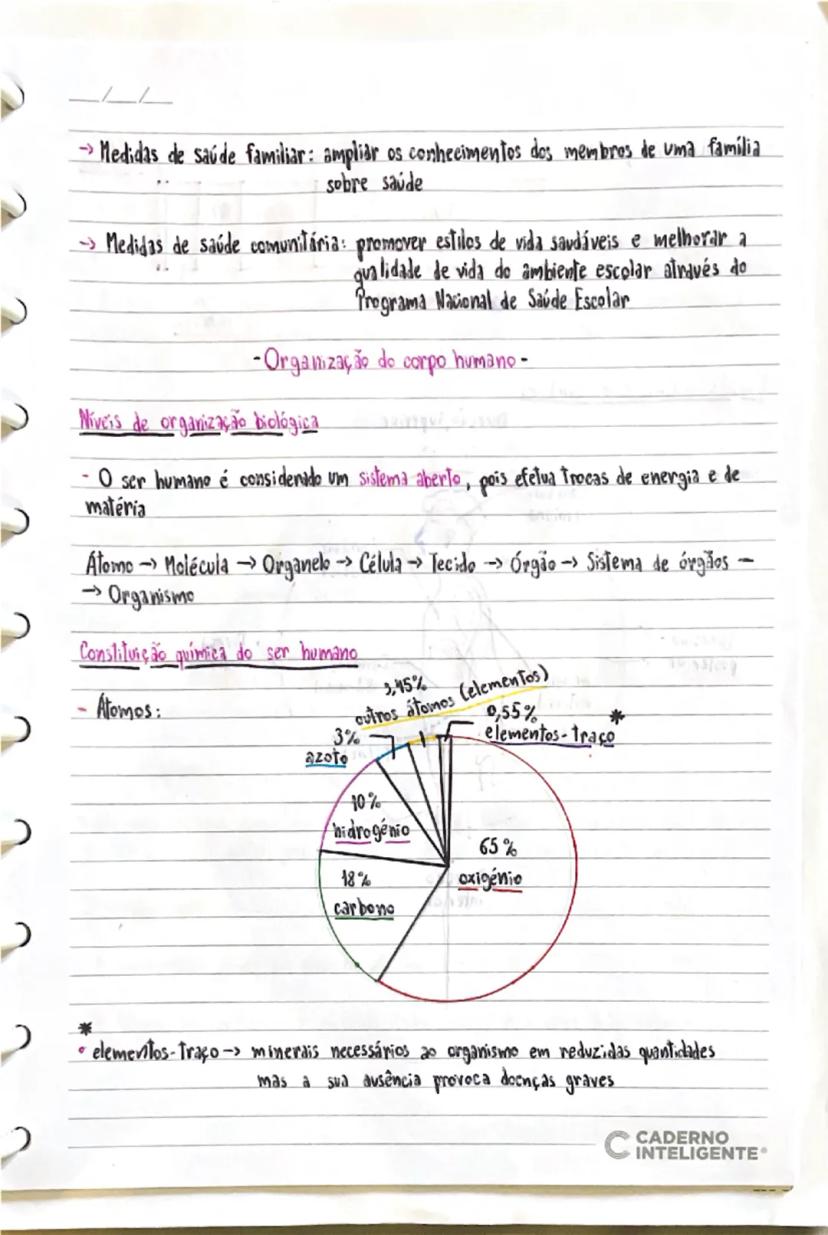 __/__/__
→ Medidas de saúde familiar: ampliar os conhecimentos dos membros de uma família
sobre saúde
→ Medidas de saúde comunitária: promover estilos de vida saudáveis e melhorar a
qualidade de vida do ambiente escolar através do
Programa Nacional de Saúde Escolar
- Organização do corpo humano -
Níveis de organização biológica
- O ser humano é considerado um sistema aberto, pois efetua trocas de energia e de
matéria
Átomo → Molécula → Organelo → Célula → Tecido → Órgão → Sistema de órgãos —
→ Organismo
Constituição química do ser humano
- Átomos:
3,45%
outros átomos (elementos)
0,55%
elementos-traço *
3%
azoto
10%
hidrogénio
65%
oxigénio
18%
carbono
*
• elementos-traço → minerais necessários ao organismo em reduzidas quantidades
mas a sua ausência provoca doenças graves
CADERNO
INTELIGENTE®